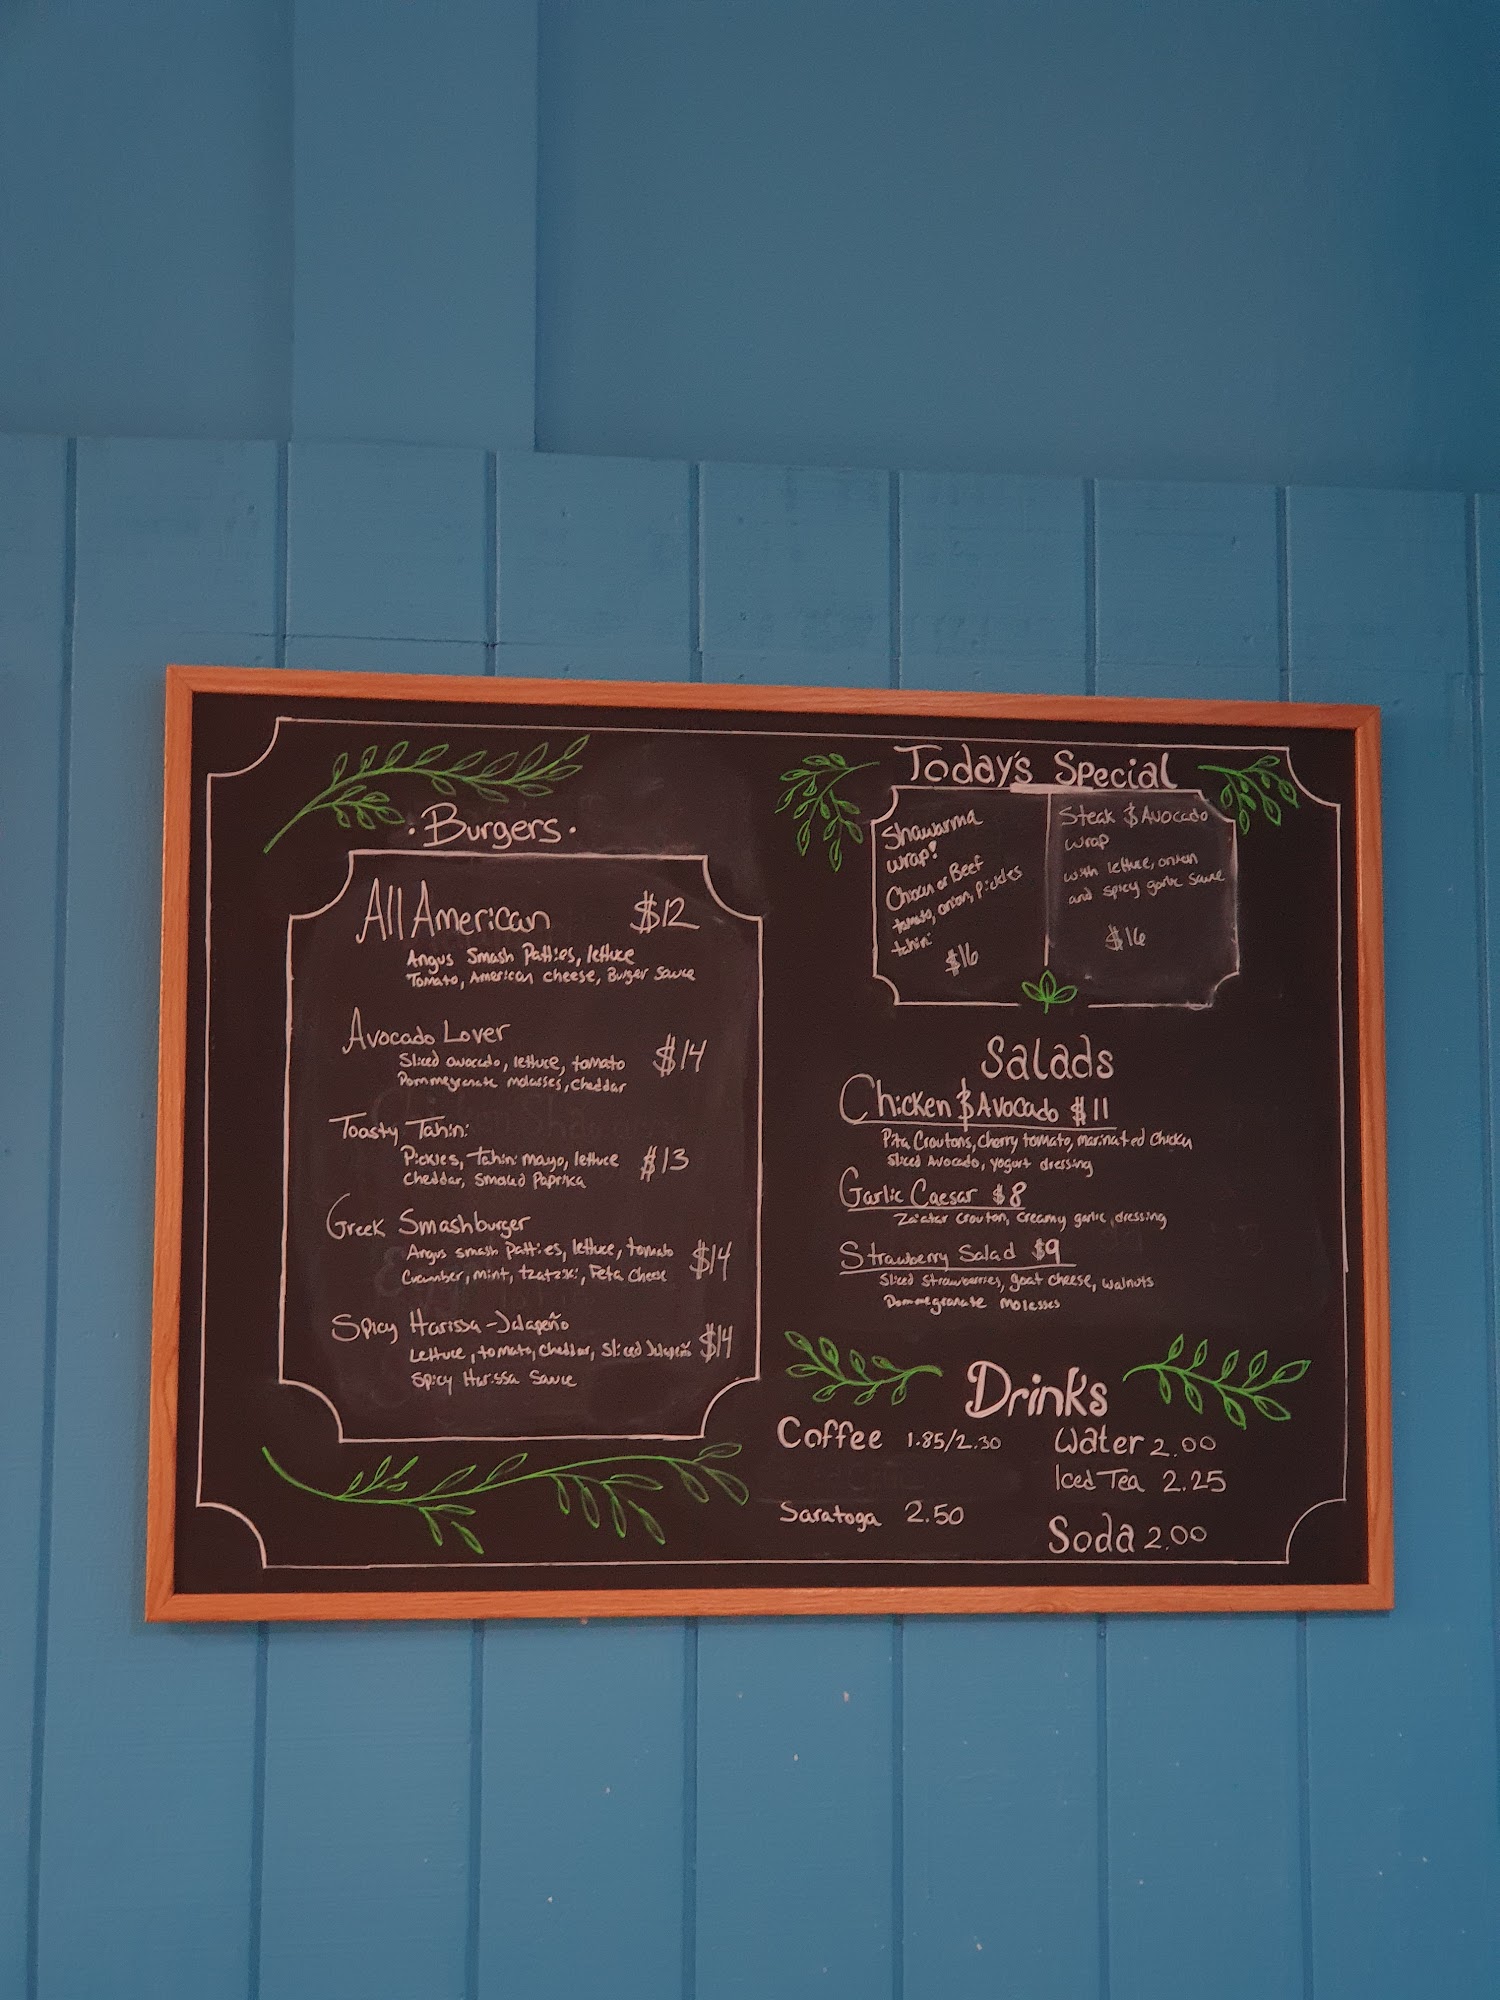 · Burgers ·
All American $12
Angus Smash Patties, lettuce
Tomato, American cheese, Burger sauce
Avocado Lover
Sliced avocado, lettuce, tomato $14
Pommegranate molasses, cheddar
Toasty Tahini
Pickles, Tahini mayo, lettuce $13
Cheddar, smoked Paprika
Greek Smashburger
Angus smash patties, lettuce, tomato $14
Cucumber, mint, tzatziki, Feta Cheese
Spicy Harissa-Jalapeño
Lettuce, tomato, cheddar, sliced Jalapeño $14
Spicy Harissa Sauce
Today's Special
Shawarma
wrap!
Chicken or Beef
tomato, onion, Pickles
tahini
$16
Steak & Avocado
wrap
with lettuce, onion
and spicy garlic sauce
$16
Salads
Chicken & Avocado $11
Pita Croutons, cherry tomato, marinated chicken
Sliced Avocado, yogurt dressing
Garlic Caesar $8
Za'atar crouton, creamy garlic dressing
Strawberry Salad $9
Sliced strawberries, goat cheese, walnuts
Pommegranate molesses
Drinks
Coffee 1.85/2.30
Saratoga 2.50
Water 2.00
Iced Tea 2.25
Soda 2.00